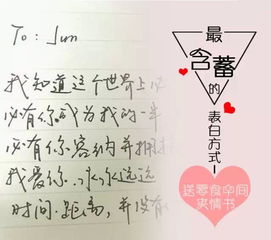 To: Jun
我知道这个世界上
必有你成为我的一半
必有你容纳并拥抱
我爱你. 永永远远
时间. 距离, 并没有
最
含蓄
的
表白方式
送零食中间
夹情书